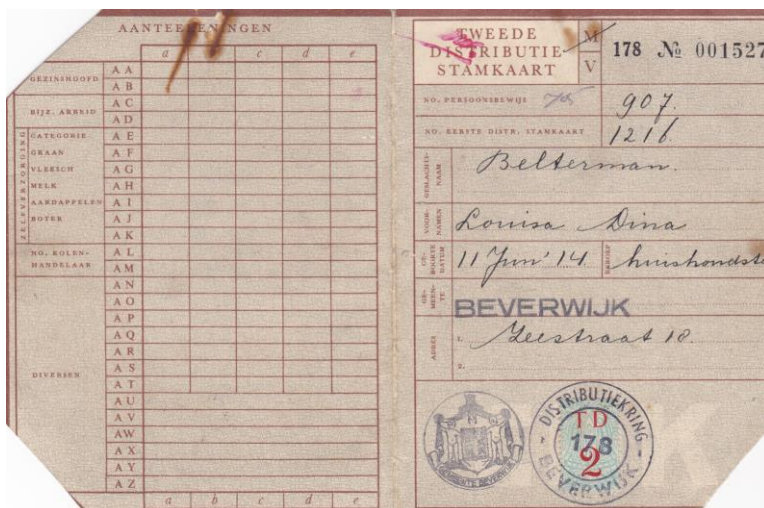 AANTEEKENINGEN
a b c d e
GEZINSHOOFD
AA
AB
BIJZ. ARBEID
AC
AD
ZELFVERZORGING
CATEGORIE AE
GRAAN AF
VLEESCH AG
MELK AH
AARDAPPELEN AI
BOTER AJ
AK
NO. KOLEN-
HANDELAAR
AL
AM
DIVERSEN
AN
AO
AP
AQ
AR
AS
AT
AU
AV
AW
AX
AY
AZ
a b c d e
TWEEDE
DISTRIBUTIE
STAMKAART
M
V
178 № 001527
NO. PERSOONSBEWIJS 907.
NO. EERSTE DISTR. STAMKAART 1216
GESLACHTS-
NAAM
Belterman.
VOOR-
NAMEN
Louisa Dina
GE-
BOORTE
DATUM
11 Jun' 14
BEROEP
GE-
MEEN-
TE
BEVERWIJK
ADRES
1. Zeestraat 18.
2.
GEMEENTE BEVERWIJK
DISTRIBUTIEKRING
TD
178
2
BEVERWIJK